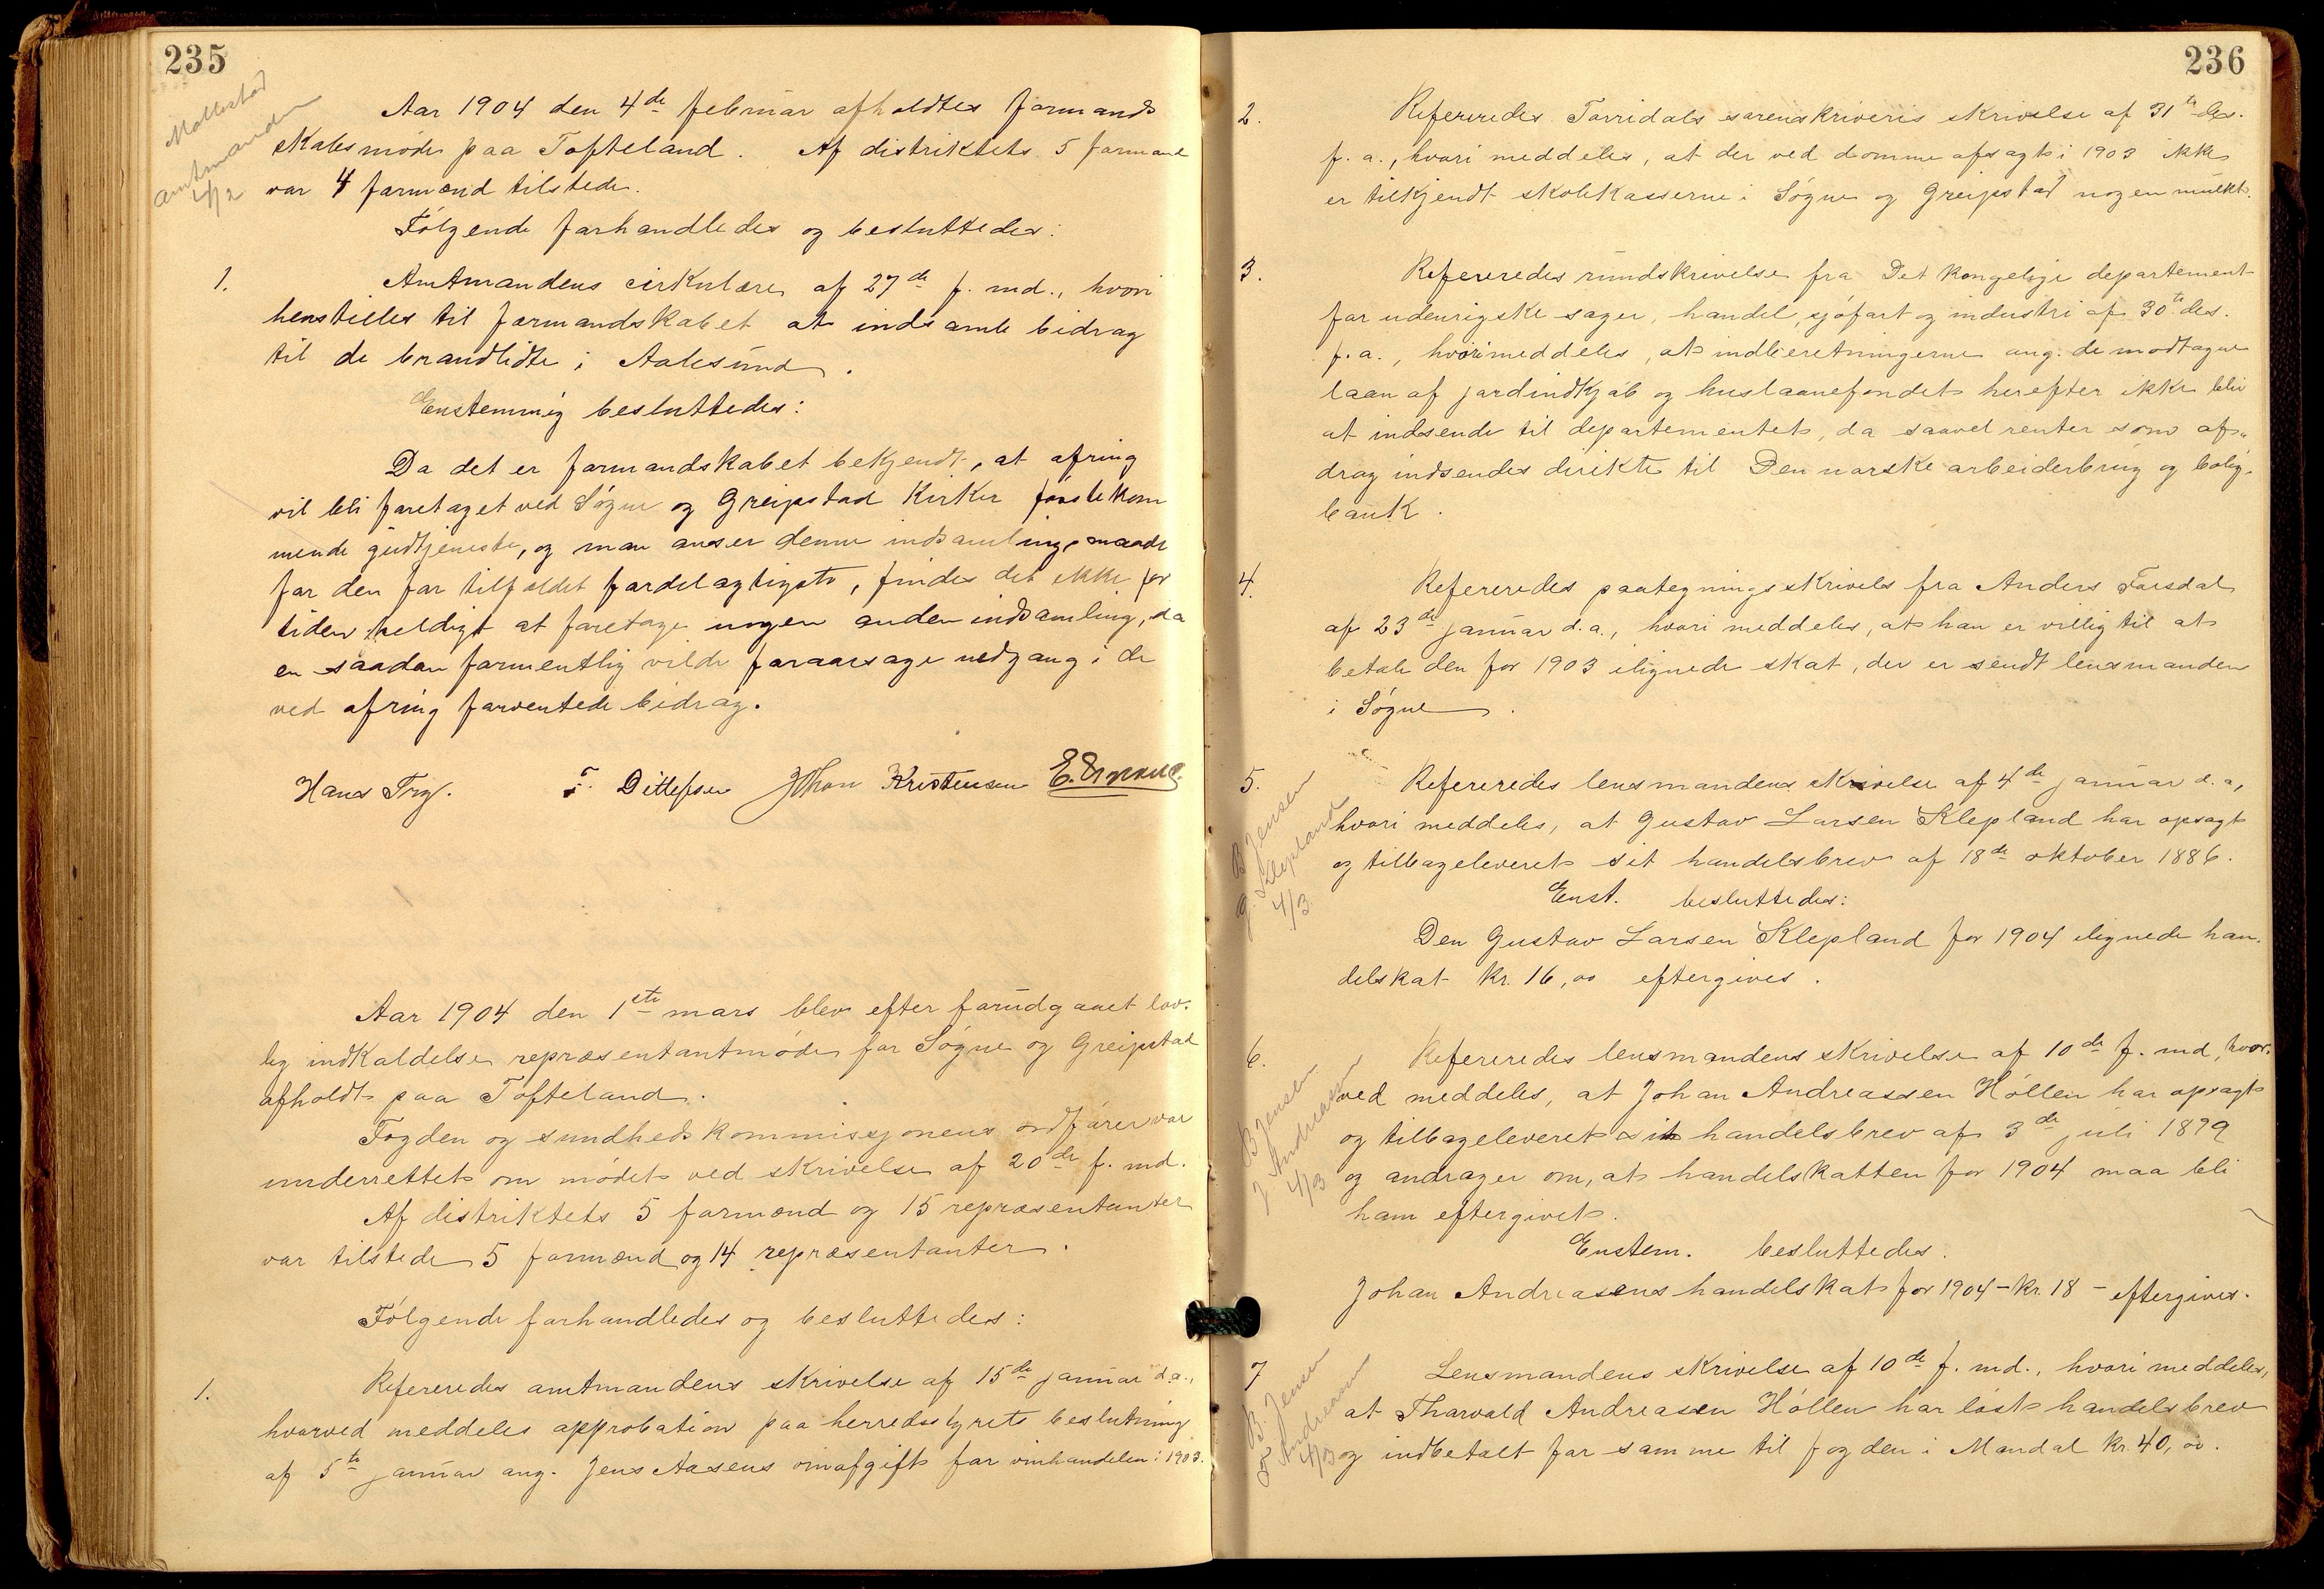 235
Mollestad
amtmanden
4/2
Aar 1904 den 4de februar afholdtes formand-
skabsmøde paa Tofteland. Af distriktets 5 formænd
var 4 formænd tilstede.
Følgende forhandledes og besluttedes:
1. Amtmandens cirkulære af 27de f. md., hvori
henstilles til formandskabet at indsamle bidrag
til de brandlidte i Aalesund.
Enstemmig besluttedes:
Da det er formandskabet bekjendt, at ofring
vil bli foretaget ved Søgne og Greipstad kirker førstekom
mende gudtjeneste, og man anser denne indsamlingsmaade
for den for tilfældet fordelagtigste, findes det ikke for
tiden heldigt at foretage nogen anden indsamling, da
en saadan formentlig vilde foraarsage nedgang i de
ved ofring forventede bidrag.
Hans Try. T. Ditlefsen Johan Kristensen
Aar 1904 den 1ste mars blev efter forudgaaet lov-
lig indkaldelse repræsentantmøde for Søgne og Greipstad
afholdt paa Tofteland.
Fogden og sundhedskommissjonens ordfører var
underrettet om mødet ved skrivelse af 20de f. md.
Af distriktets 5 formænd og 15 repræsentanter
var tilstede 5 formænd og 14 repræsentanter.
Følgende forhandledes og besluttedes:
1. Refereredes amtmandens skrivelse af 15de januar d.a.,
hvorved meddeles approbation paa herredsstyrets beslutning
af 5te januar ang. Jens Aasens vinafgift for vinhandelen i 1903.
236
2. Refereredes Torridals sorenskriveris skrivelse af 31te des.
f. a., hvori meddeles, at der ved domme afsagt i 1903 ikke
er tilkjendt skolekasserne i Søgne og Greipstad nogen mulkt.
3. Refereredes rundskrivelse fra Det kongelige departement
for udenrigske sager, handel, sjøfart og industri af 30te des.
f. a., hvori meddeles, at indberetningerne ang. de modtagne
laan af jordindkjøb og huslaanefondet herefter ikke blir
at indsende til departementet, da saavel renter som af-
drag indsendes direkte til Den norske arbeiderbrug og bolig-
bank.
4. Refereredes paategningsskrivelse fra Anders Forsdal
af 23de januar d.a., hvori meddeles, at han er villig til at
betale den for 1903 ilignede skat, der er sendt lensmanden
i Søgne.
B Jensen
G. Klepland
4/3
5. Refereredes lensmandens skrivelse af 4de januar d.a,
hvori meddeles, at Gustav Larsen Klepland har opsagt
og tilbageleveret sit handelsbrev af 18de oktober 1886.
Enst. besluttedes:
Den Gustav Larsen Klepland for 1904 ilignede han-
delskat kr. 16,00 eftergives.
B Jensen
J Andreasen
4/3
6. Refereredes lensmandens skrivelse af 10de f. md, hvor-
ved meddeles, at Johan Andreassen Høllen har opsagt
og tilbageleveret sit handelsbrev af 3de juli 1899
og andrager om, at handelskatten for 1904 maa bli
ham eftergivet.
Enstem. besluttedes.
Johan Andreasens handelskat for 1904 – kr. 18 – eftergives.
B. Jensen
T Andreasen
4/3
7 Lensmandens skrivelse af 10de f. md., hvori meddeles,
at Tharvald Andreasen Høllen har løst handelsbrev
og indbetalt for samme til fogden i Mandal kr. 40,00.